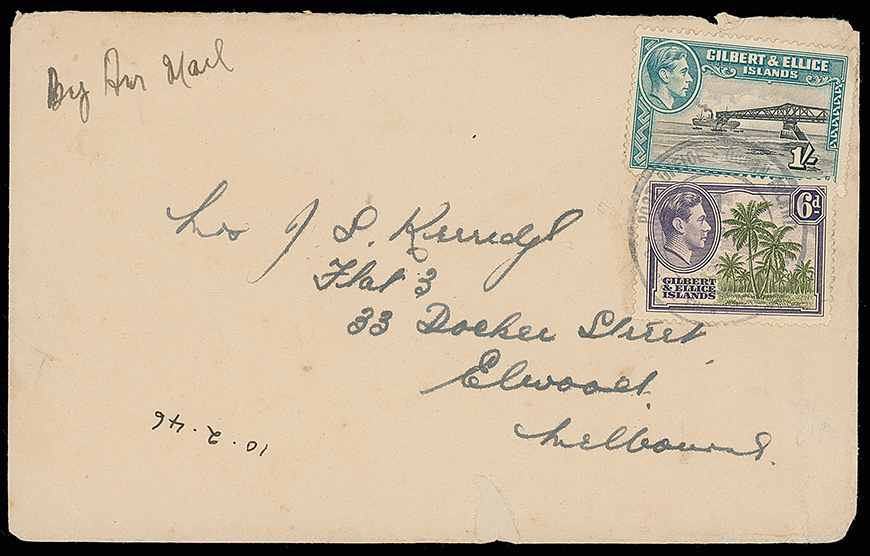 By Air Mail
GILBERT & ELLICE
ISLANDS
1/-
POST OFFICE
6d
GILBERT
& ELLICE
ISLANDS
Mrs J L
Flat 3
33 Docker Street
Elwood
Melbourne.
10.2.46